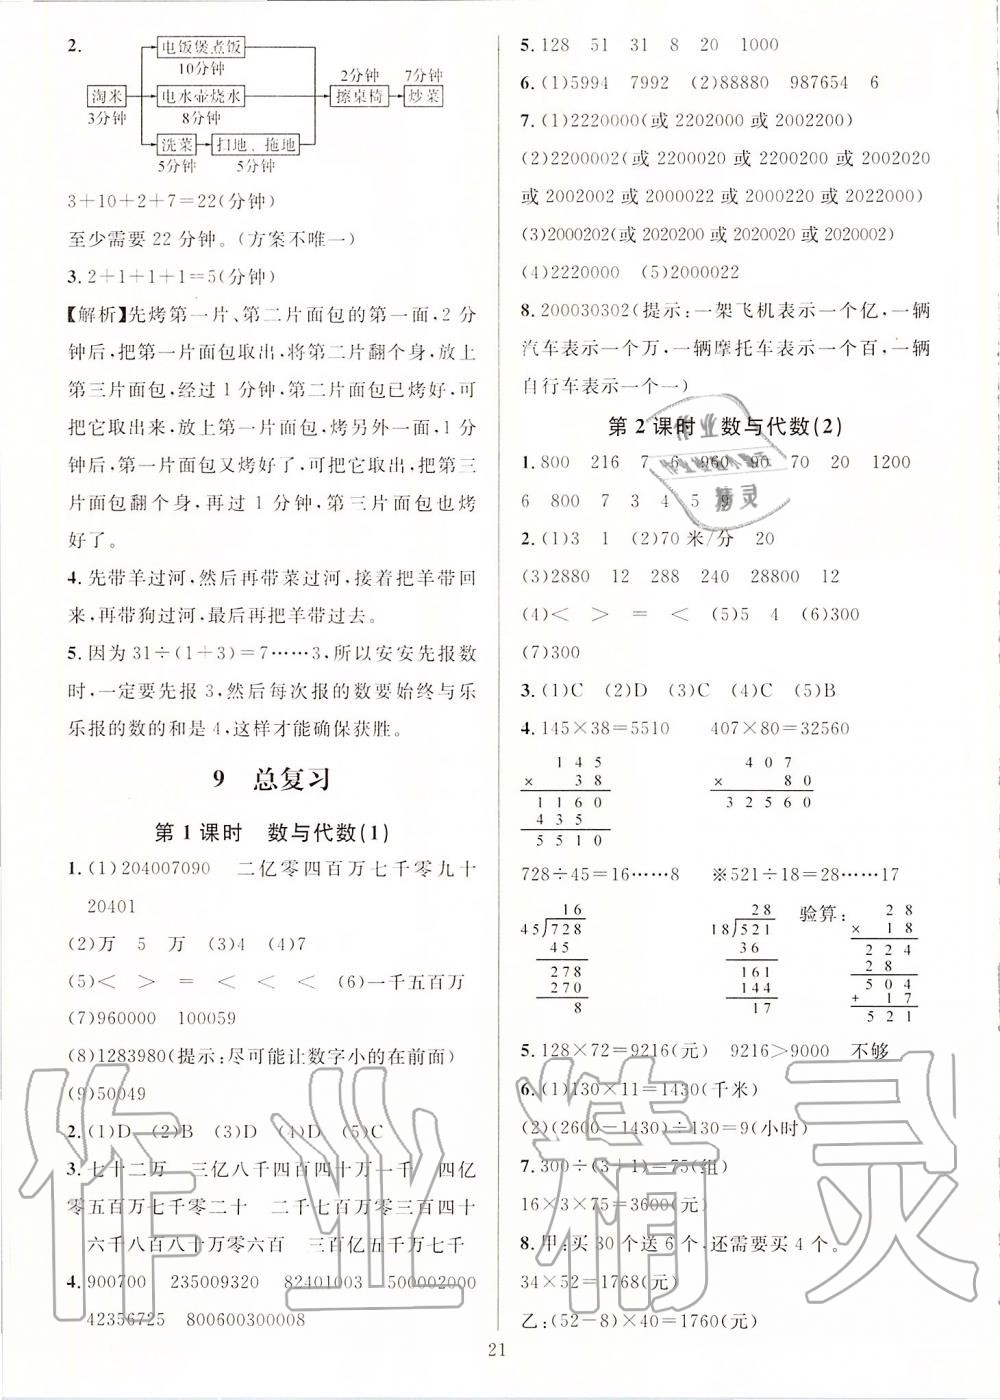 2.
电饭煲煮饭
10分钟
2分钟 7分钟
淘米 电水壶烧水 擦桌椅 炒菜
3分钟 8分钟
洗菜 扫地、拖地
5分钟 5分钟
3+10+2+7=22(分钟)
至少需要 22 分钟。(方案不唯一)
3. 2+1+1+1=5(分钟)
【解析】先烤第一片、第二片面包的第一面,2 分
钟后,把第一片面包取出,将第二片翻个身,放上
第三片面包,经过 1 分钟,第二片面包已烤好,可
把它取出来,放上第一片面包,烤另外一面,1 分
钟后,第一片面包又烤好了,可取出,并把第三片
片面包翻个身,再过 1 分钟,第三片面包也烤
好了。
4. 先带羊过河,然后再带菜过河,接着把羊带回
来,再带狗过河,最后再把羊带过去。
5. 因为 31÷(1+3)=7……3,所以安安先报数
时,一定要先报 3,然后每次报的数要始终与乐
乐报的数的和是 4,这样才能确保获胜。
9 总复习
第 1 课时 数与代数(1)
1. (1)204007090 二亿零四百万七千零九十
20401
(2)万 5 万 (3)4 (4)7
(5)< > = < < < (6)一千五百万
(7)960000 100059
(8)1283980(提示:尽可能让数字小的在前面)
(9)50049
2. (1)D (2)B (3)D (4)D (5)C
3. 七十二万 三亿八千四百四十万一千 四亿
零五百万七千零二十 二千七百零三百四十
六千八百八十万零六百 三百亿五千万七千
4. 900700 235009320 82401003 500002000
42356725 800600300008
5. 128 51 31 8 20 1000
6. (1)5994 7992 (2)88880 987654 6
7. (1)2220000(或 2202000 或 2002200)
(2)2200002(或 2200020 或 2200200 或 2002020
或 2002002 或 2022000 或 2000220 或 2022000)
(3)2000202(或 2020200 或 2020020 或 2020002)
(4)2220000 (5)2000022
8. 200030302(提示:一架飞机表示一个亿,一辆
汽车表示一个万,一辆摩托车表示一个百,一辆
自行车表示一个一)
第 2 课时 数与代数(2)
1. 800 216 7 6 960 90 70 20 1200
6 800 7 3 4 5 9
2. (1)3 1 (2)70 米/分 20
(3)2880 12 288 240 28800 12
(4)< > = < (5)5 4 (6)300
(7)300
3. (1)C (2)D (3)C (4)C (5)B
4. 145×38=5510 407×80=32560
1 4 5 4 0 7
× 3 8 × 8 0
1 1 6 0 3 2 5 6 0
4 3 5
5 5 1 0
728÷45=16……8 ※521÷18=28……17
16 28 验算: 2 8
45 728 18 521 × 1 8
45 36 2 2 4
278 161 2 8
270 144 5 0 4
8 17 + 1 7
5 2 1
5. 128×72=9216(元) 9216>9000 不够
6. (1)130×11=1430(千米)
(2)(2600-1430)÷130=9(小时)
7. 300÷(3+1)=75(组)
16×3×75=3600(元)
8. 甲:买 30 个送 6 个,还需要买 4 个。
34×52=1768(元)
乙:(52-8)×40=1760(元)
21
作业精灵
作业精灵